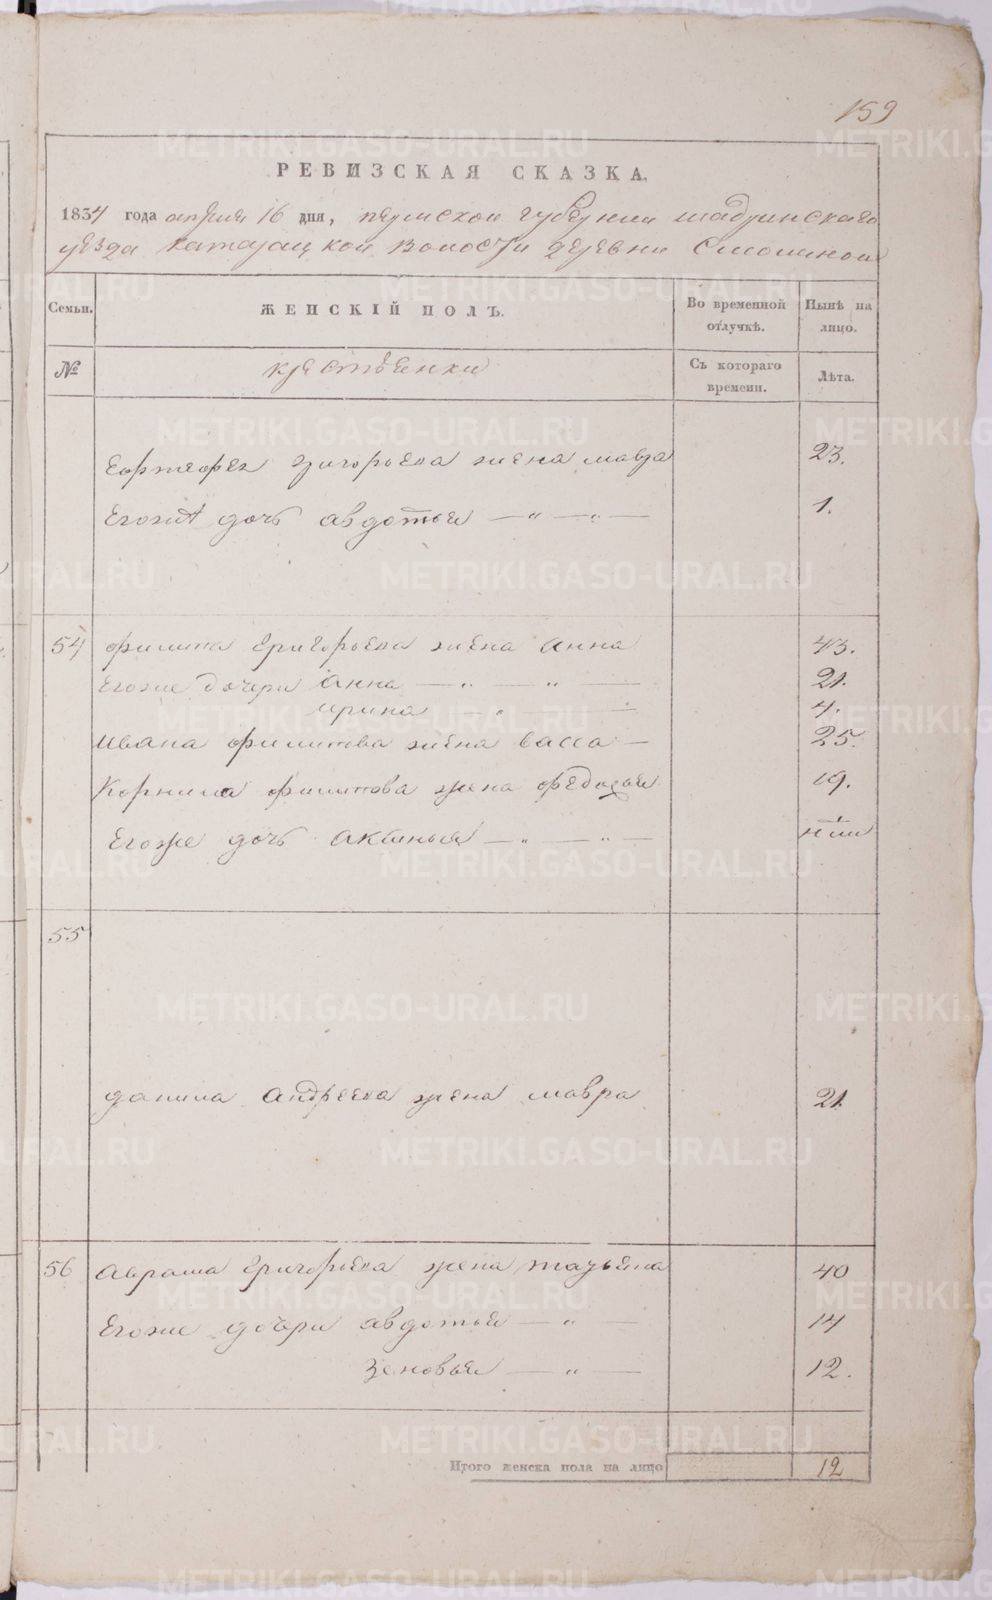 159
РЕВИЗСКАЯ СКАЗКА.
1834 года апреля 16 дня, пермской губернии шадринскаго
уезда катайской волости деревни Смолиной
Семьи. ЖЕНСКІЙ ПОЛЪ. Во временной отлучкѣ. Нынѣ на лицо.
№ крестьянки Съ котораго времени. Лѣта.
григорьева жена мавра 23.
Егоже дочь авдотья — „ — „ — 1.
54 филипа григорьева жена анна 43.
Егоже дочери Анна — „ — „ — 21.
ирина — „ — „ 4.
Ивана филипова жена васса — 25.
Корнила филипова жена федосья 19.
Егоже дочь аксинья — „ — „ — н ѣм
55
данила Андреева жена мавра 21.
56 Аврама григорьева жена татьяна 40
Егоже дочери авдотья — „ — 14
Зеновья — „ — 12.
Итого женска пола на лицо 12
METRIKI.GASO-URAL.RU